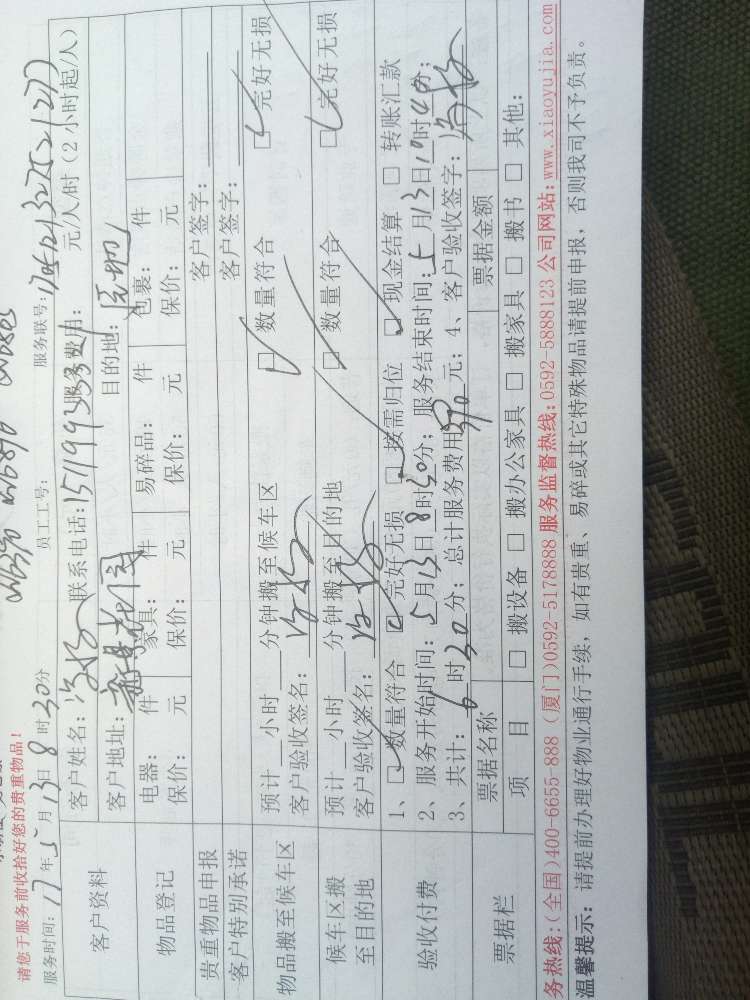 请您于服务前收拾好您的贵重物品!
服务时间: 17年5月13日8时30分 员工工号: 服务联号:
客户资料 客户姓名: 联系电话: 15119933 服务费用: 元/人/时(2小时起/人)
客户地址: 目的地:
物品登记 电器: 件 家具: 件 易碎品: 件 包裹: 件
保价: 元 保价: 元 保价: 元 保价: 元
贵重物品申报 客户签字:
客户特别承诺 客户签字:
物品搬至候车区 预计 小时 分钟搬至候车区 □ 数量符合 □ 完好无损
客户验收签名:
候车区搬至目的地 预计 小时 分钟搬至目的地 □ 数量符合 □ 完好无损
客户验收签名:
验收付费 1、□ 数量符合 □ 完好无损 □ 按需归位 □ 现金结算 □ 转账汇款
2、服务开始时间: 5月13日8时30分; 服务结束时间: 5月13日 时 分;
3、共计: 6时30分; 总计服务费用 元; 4、客户验收签字:
票据栏 票据名称 票据金额
项 目 □ 搬设备 □ 搬办公家具 □ 搬家具 □ 搬书 □ 其他:
务热线:(全国)400-6655-888 (厦门)0592-5178888 服务监督热线:0592-5888123 公司网站:www.xiaoyujia.com
温馨提示: 请提前办理好物业通行手续, 如有贵重、易碎或其它特殊物品请提前申报, 否则我司不予负责。